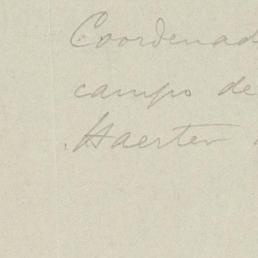 Coordenad
campo de
Haerter